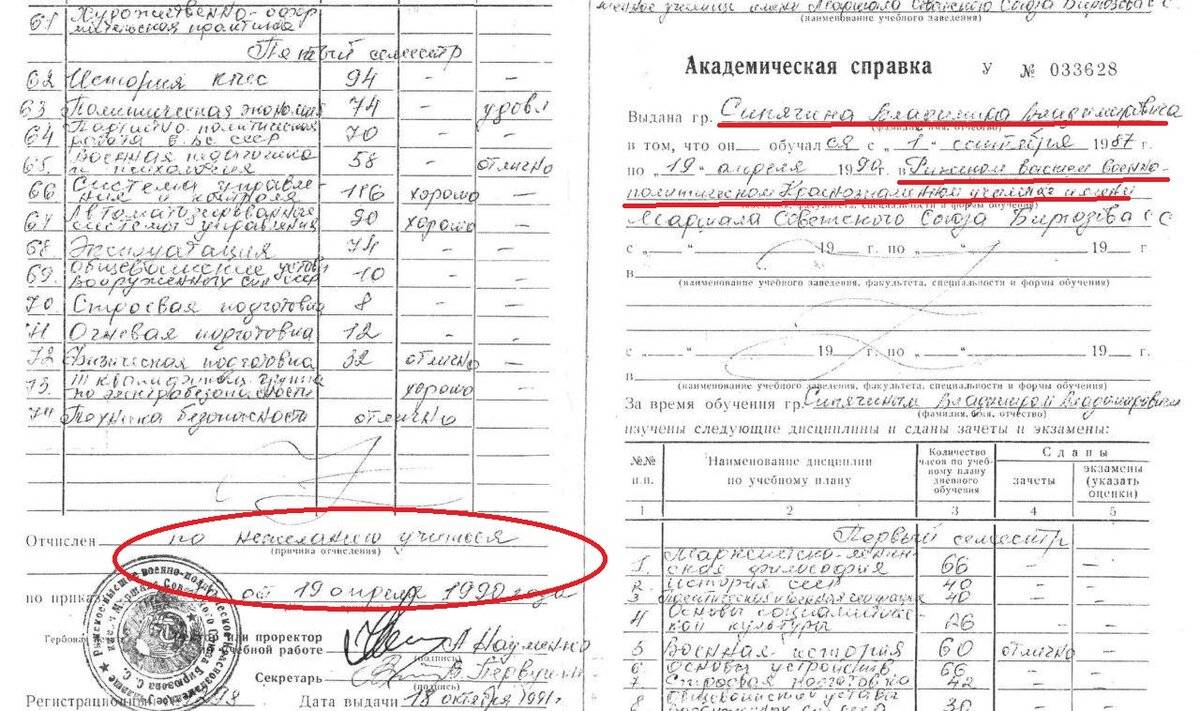 61 Художественно-офор-
мительская практика
Пятый семестр
62 История КПСС 94 - -
63 Политическая экономия 74 - удовл
64 Партийно-политическая
работа в ВС СССР 70 - -
65. Военная педагогика
и психология 58 - отлично
66 Система управле-
ния и контроля 186 хорошо -
67 Автоматизированная
система управления 90 хорошо -
68 Эксплуатация 74 - -
69. Общевоинские уставы
вооруженных сил СССР 10 - -
70 Строевая подготовка 8 - -
71 Огневая подготовка 12 - -
72 Физическая подготовка 32 отлично -
73. III квалификац. группа
по электробезопасности хорошо
74 Техника безопасности отлично
Отчислен по нежеланию учиться
(причина отчисления)
по приказу от 19 апреля 1990 года
Гербовая печать
или проректор
по учебной работе Науменко
(подпись)
Секретарь
(подпись)
Регистрационный Дата выдачи 18 октября 1991 г.
военное училище имени Маршала Советского Союза Бирюзова С С
(наименование учебного заведения)
Академическая справка У № 033628
Выдана гр. Синягина Владимира Владимировича
(фамилия, имя, отчество)
в том, что он обучался с "1" сентября 1987 г.
по "19" апреля 1990 г. в Рижском высшем военно-
политическом Краснознаменном училище имени
(наименование учебного заведения, факультета, специальности и формы обучения)
Маршала Советского Союза Бирюзова С С
с „ “ 19 г. по „ “ 19 г.
в
(наименование учебного заведения, факультета, специальности и формы обучения)
с „ “ 19 г. по „ “ 19 г.
в
(наименование учебного заведения, факультета, специальности и формы обучения)
За время обучения гр. Синягиным Владимиром Владимировичем
(фамилия, имя, отчество)
изучены следующие дисциплины и сданы зачеты и экзамены:
№№ п.п. Наименование дисциплин по учебному плану Количество часов по учеб- ному плану дневного обучения Сданы зачеты экзамены (указать оценки)
1 2 3 4 5
Первый семестр
1. Марксистско-ленин-
ская философия 66 - -
2 История СССР 40 - -
3 Политическая и военная география 40 - -
4 Основы социалистичес-
кой культуры 26 - -
5 Военная история 60 отлично -
6 Основы устройств 66 - -
7 Строевая подготовка 42 - -
8 Общевоинские уставы
вооруженных сил СССР 30 - -